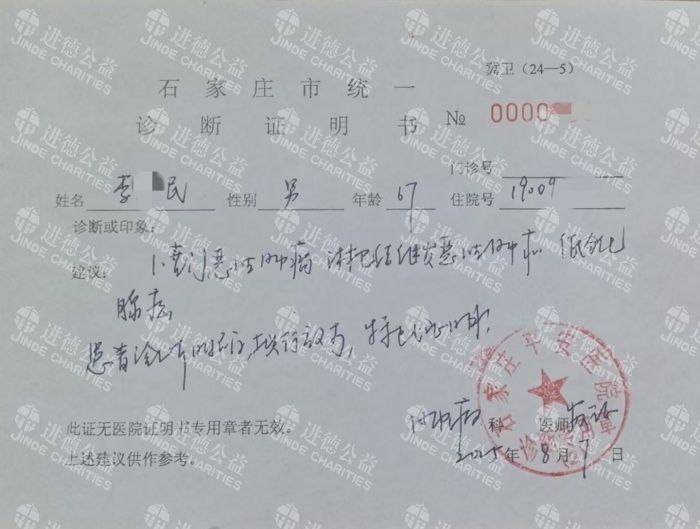 冀卫（24—5）
石家庄市统一
诊断证明书 № 0000
门诊号
姓名 李 民 性别 男 年龄 67 住院号 19009
诊断或印象：
建议： 1、贲门恶性肿瘤 淋巴结继发恶性肿瘤
腺癌
患者诊断明确，拟行放疗，特此证明。
此证无医院证明书专用章者无效。
科 医师
上述建议供作参考。
2025年8月7日
石家庄平安医院
进德公益
JINDE CHARITIES